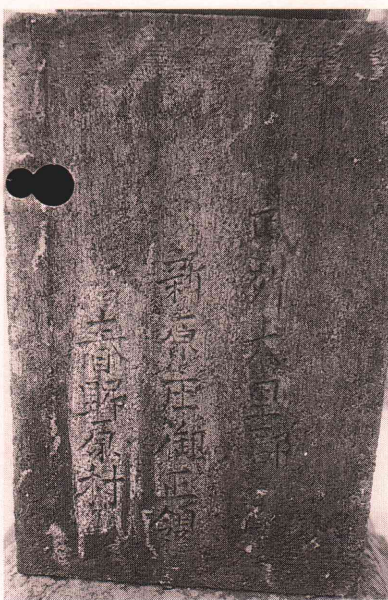 武州大里郡
新原庄御正領
春野原村